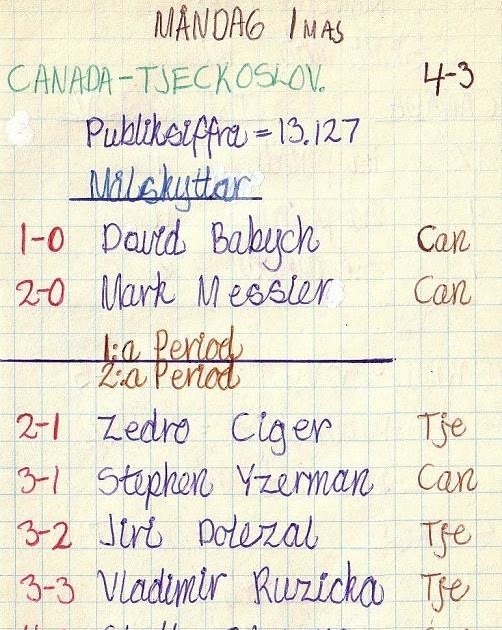 MÅNDAG 1 MAJ
CANADA-TJECKOSLOV. 4-3
Publiksiffra = 13.127
Målskyttar
1-0 David Babych Can
2-0 Mark Messier Can
1:a Period
2:a Period
2-1 Zedro Ciger Tje
3-1 Stephen Yzerman Can
3-2 Jiri Dolezal Tje
3-3 Vladimir Ruzicka Tje